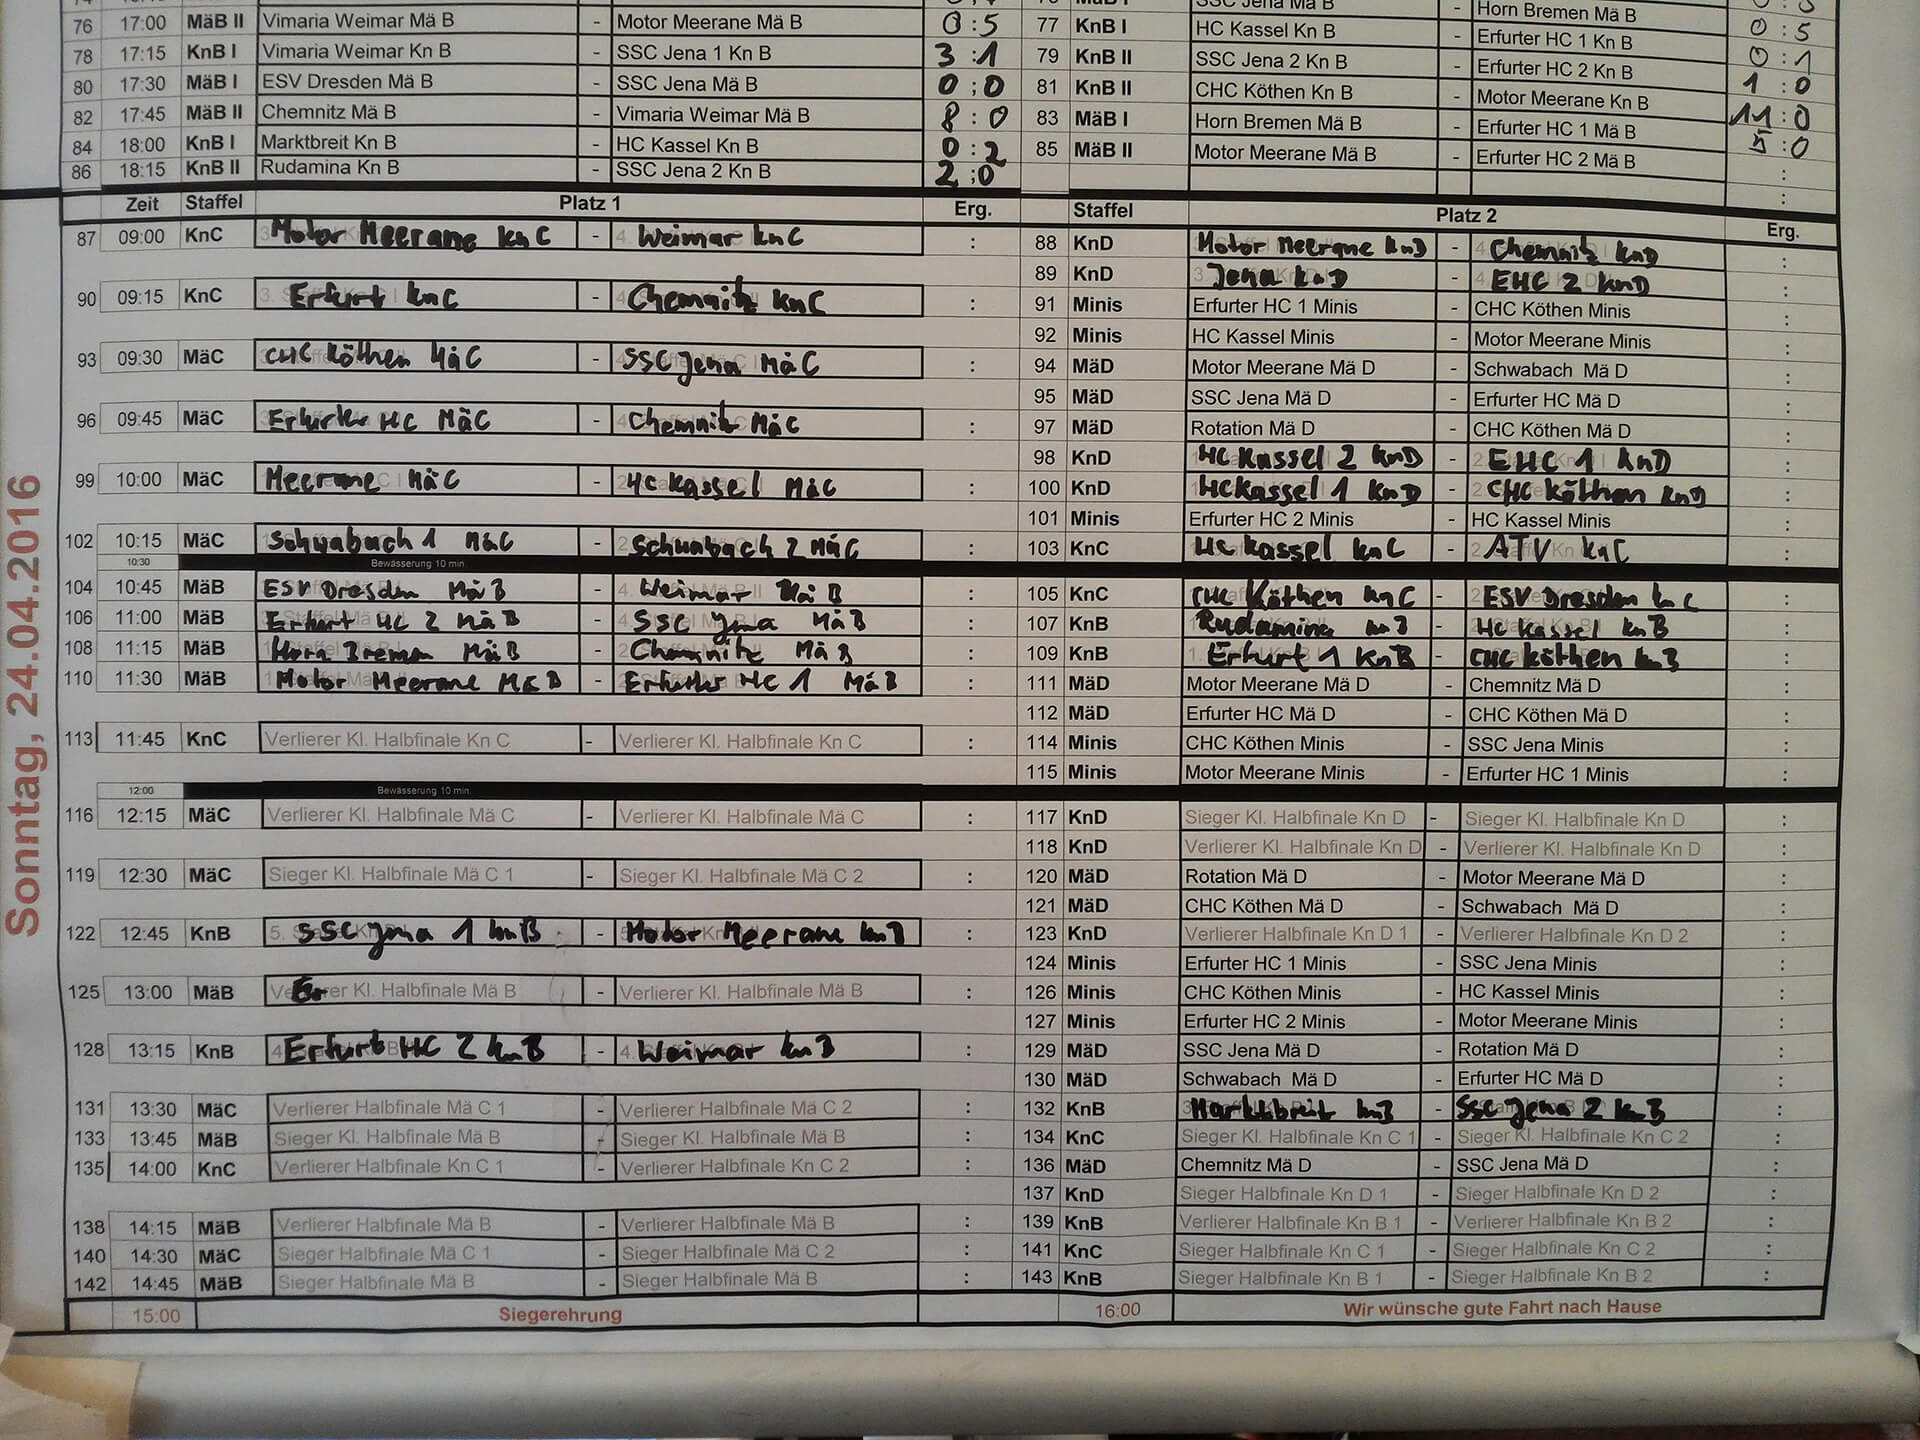 SSC Jena Mä B - Horn Bremen Mä B
76 17:00 MäB II Vimaria Weimar Mä B - Motor Meerane Mä B 0 : 5 77 KnB I HC Kassel Kn B - Erfurter HC 1 Kn B 0 : 5
78 17:15 KnB I Vimaria Weimar Kn B - SSC Jena 1 Kn B 3 : 1 79 KnB II SSC Jena 2 Kn B - Erfurter HC 2 Kn B 0 : 1
80 17:30 MäB I ESV Dresden Mä B - SSC Jena Mä B 0 : 0 81 KnB II CHC Köthen Kn B - Motor Meerane Kn B 1 : 0
82 17:45 MäB II Chemnitz Mä B - Vimaria Weimar Mä B 8 : 0 83 MäB I Horn Bremen Mä B - Erfurter HC 1 Mä B 11 : 0
84 18:00 KnB I Marktbreit Kn B - HC Kassel Kn B 0 : 2 85 MäB II Motor Meerane Mä B - Erfurter HC 2 Mä B 5 : 0
86 18:15 KnB II Rudamina Kn B - SSC Jena 2 Kn B 2 : 0 :
Zeit Staffel Platz 1 Erg. Staffel Platz 2 Erg.
Sonntag, 24.04.2016
87 09:00 KnC Motor Meerane KnC - Weimar KnC : 88 KnD Motor Meerane KnD - Chemnitz KnD :
89 KnD Jena KnD - EHC 2 KnD :
90 09:15 KnC Erfurt KnC - Chemnitz KnC : 91 Minis Erfurter HC 1 Minis - CHC Köthen Minis :
92 Minis HC Kassel Minis - Motor Meerane Minis :
93 09:30 MäC CHC Köthen MäC - SSC Jena MäC : 94 MäD Motor Meerane Mä D - Schwabach Mä D :
95 MäD SSC Jena Mä D - Erfurter HC Mä D :
96 09:45 MäC Erfurter HC MäC - Chemnitz MäC : 97 MäD Rotation Mä D - CHC Köthen Mä D :
98 KnD HC Kassel 2 KnD - EHC 1 KnD :
99 10:00 MäC Meerane MäC - HC Kassel MäC : 100 KnD HC Kassel 1 KnD - CHC Köthen KnD :
101 Minis Erfurter HC 2 Minis - HC Kassel Minis :
102 10:15 MäC Schwabach 1 MäC - Schwabach 2 MäC : 103 KnC HC Kassel KnC - ATV KnC :
10:30 Bewässerung 10 min
104 10:45 MäB ESV Dresden MäB - Weimar MäB : 105 KnC CHC Köthen KnC - ESV Dresden KnC :
106 11:00 MäB Erfurt HC 2 MäB - SSC Jena MäB : 107 KnB Rudamina KnB - HC Kassel KnB :
108 11:15 MäB Horn Bremen MäB - Chemnitz MäB : 109 KnB Erfurt 1 KnB - CHC Köthen KnB :
110 11:30 MäB Motor Meerane MäB - Erfurter HC 1 MäB : 111 MäD Motor Meerane Mä D - Chemnitz Mä D :
112 MäD Erfurter HC Mä D - CHC Köthen Mä D :
113 11:45 KnC Verlierer Kl. Halbfinale Kn C - Verlierer Kl. Halbfinale Kn C : 114 Minis CHC Köthen Minis - SSC Jena Minis :
115 Minis Motor Meerane Minis - Erfurter HC 1 Minis :
12:00 Bewässerung 10 min.
116 12:15 MäC Verlierer Kl. Halbfinale Mä C - Verlierer Kl. Halbfinale Mä C : 117 KnD Sieger Kl. Halbfinale Kn D - Sieger Kl. Halbfinale Kn D :
118 KnD Verlierer Kl. Halbfinale Kn D - Verlierer Kl. Halbfinale Kn D :
119 12:30 MäC Sieger Kl. Halbfinale Mä C 1 - Sieger Kl. Halbfinale Mä C 2 : 120 MäD Rotation Mä D - Motor Meerane Mä D :
121 MäD CHC Köthen Mä D - Schwabach Mä D :
122 12:45 KnB SSC Jena 1 KnB - Motor Meerane KnB : 123 KnD Verlierer Halbfinale Kn D 1 - Verlierer Halbfinale Kn D 2 :
124 Minis Erfurter HC 1 Minis - SSC Jena Minis :
125 13:00 MäB Verlierer Kl. Halbfinale Mä B - Verlierer Kl. Halbfinale Mä B : 126 Minis CHC Köthen Minis - HC Kassel Minis :
127 Minis Erfurter HC 2 Minis - Motor Meerane Minis :
128 13:15 KnB Erfurt HC 2 KnB - Weimar KnB : 129 MäD SSC Jena Mä D - Rotation Mä D :
130 MäD Schwabach Mä D - Erfurter HC Mä D :
131 13:30 MäC Verlierer Halbfinale Mä C 1 - Verlierer Halbfinale Mä C 2 : 132 KnB Marktbreit KnB - SSC Jena 2 KnB :
133 13:45 MäB Sieger Kl. Halbfinale Mä B - Sieger Kl. Halbfinale Mä B : 134 KnC Sieger Kl. Halbfinale Kn C 1 - Sieger Kl. Halbfinale Kn C 2 :
135 14:00 KnC Verlierer Halbfinale Kn C 1 - Verlierer Halbfinale Kn C 2 : 136 MäD Chemnitz Mä D - SSC Jena Mä D :
137 KnD Sieger Halbfinale Kn D 1 - Sieger Halbfinale Kn D 2 :
138 14:15 MäB Verlierer Halbfinale Mä B - Verlierer Halbfinale Mä B : 139 KnB Verlierer Halbfinale Kn B 1 - Verlierer Halbfinale Kn B 2 :
140 14:30 MäC Sieger Halbfinale Mä C 1 - Sieger Halbfinale Mä C 2 : 141 KnC Sieger Halbfinale Kn C 1 - Sieger Halbfinale Kn C 2 :
142 14:45 MäB Sieger Halbfinale Mä B - Sieger Halbfinale Mä B : 143 KnB Sieger Halbfinale Kn B 1 - Sieger Halbfinale Kn B 2 :
15:00 Siegerehrung 16:00 Wir wünsche gute Fahrt nach Hause